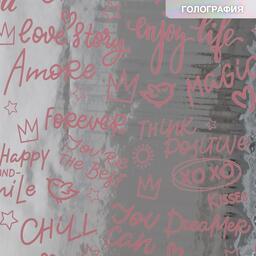 ГОЛОГРАФИЯ
love Story
enjoy life
Amore
MAGIC
FOREVER
THINK
POSITIVE
HAPPY
AND
SMILE
You ARE
THE BEST
XOXO
KISSES
CHILL
You
CAN
DREAMER